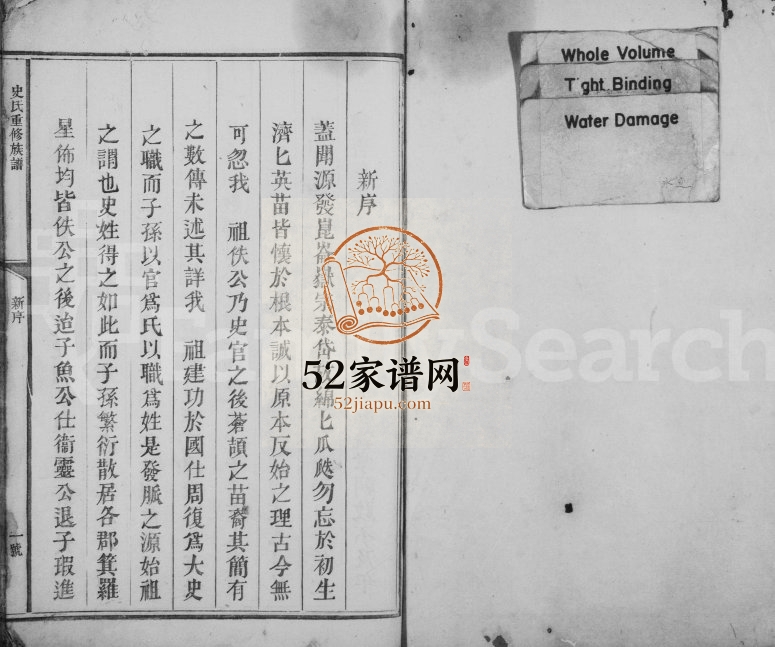 新序
蓋聞源發崑崙嶽宗泰岱綿匕瓜瓞勿忘於初生
濟匕英苗皆懷於根本誠以原本反始之理古今無
可忽我 祖佚公乃史官之後蒼頡之苗裔其簡有
之數傳未述其詳我 祖建功於國仕周復爲大史
之職而子孫以官爲氏以職爲姓是發脈之源始祖
之謂也史姓得之如此而子孫繁衍散居各郡箕羅
星佈均皆佚公之後迨子魚公仕衞靈公退子瑕進
史氏重修族譜
新序
一號
Whole Volume
Tight Binding
Water Damage
52家谱网
52jiapu.com
FamilySearch